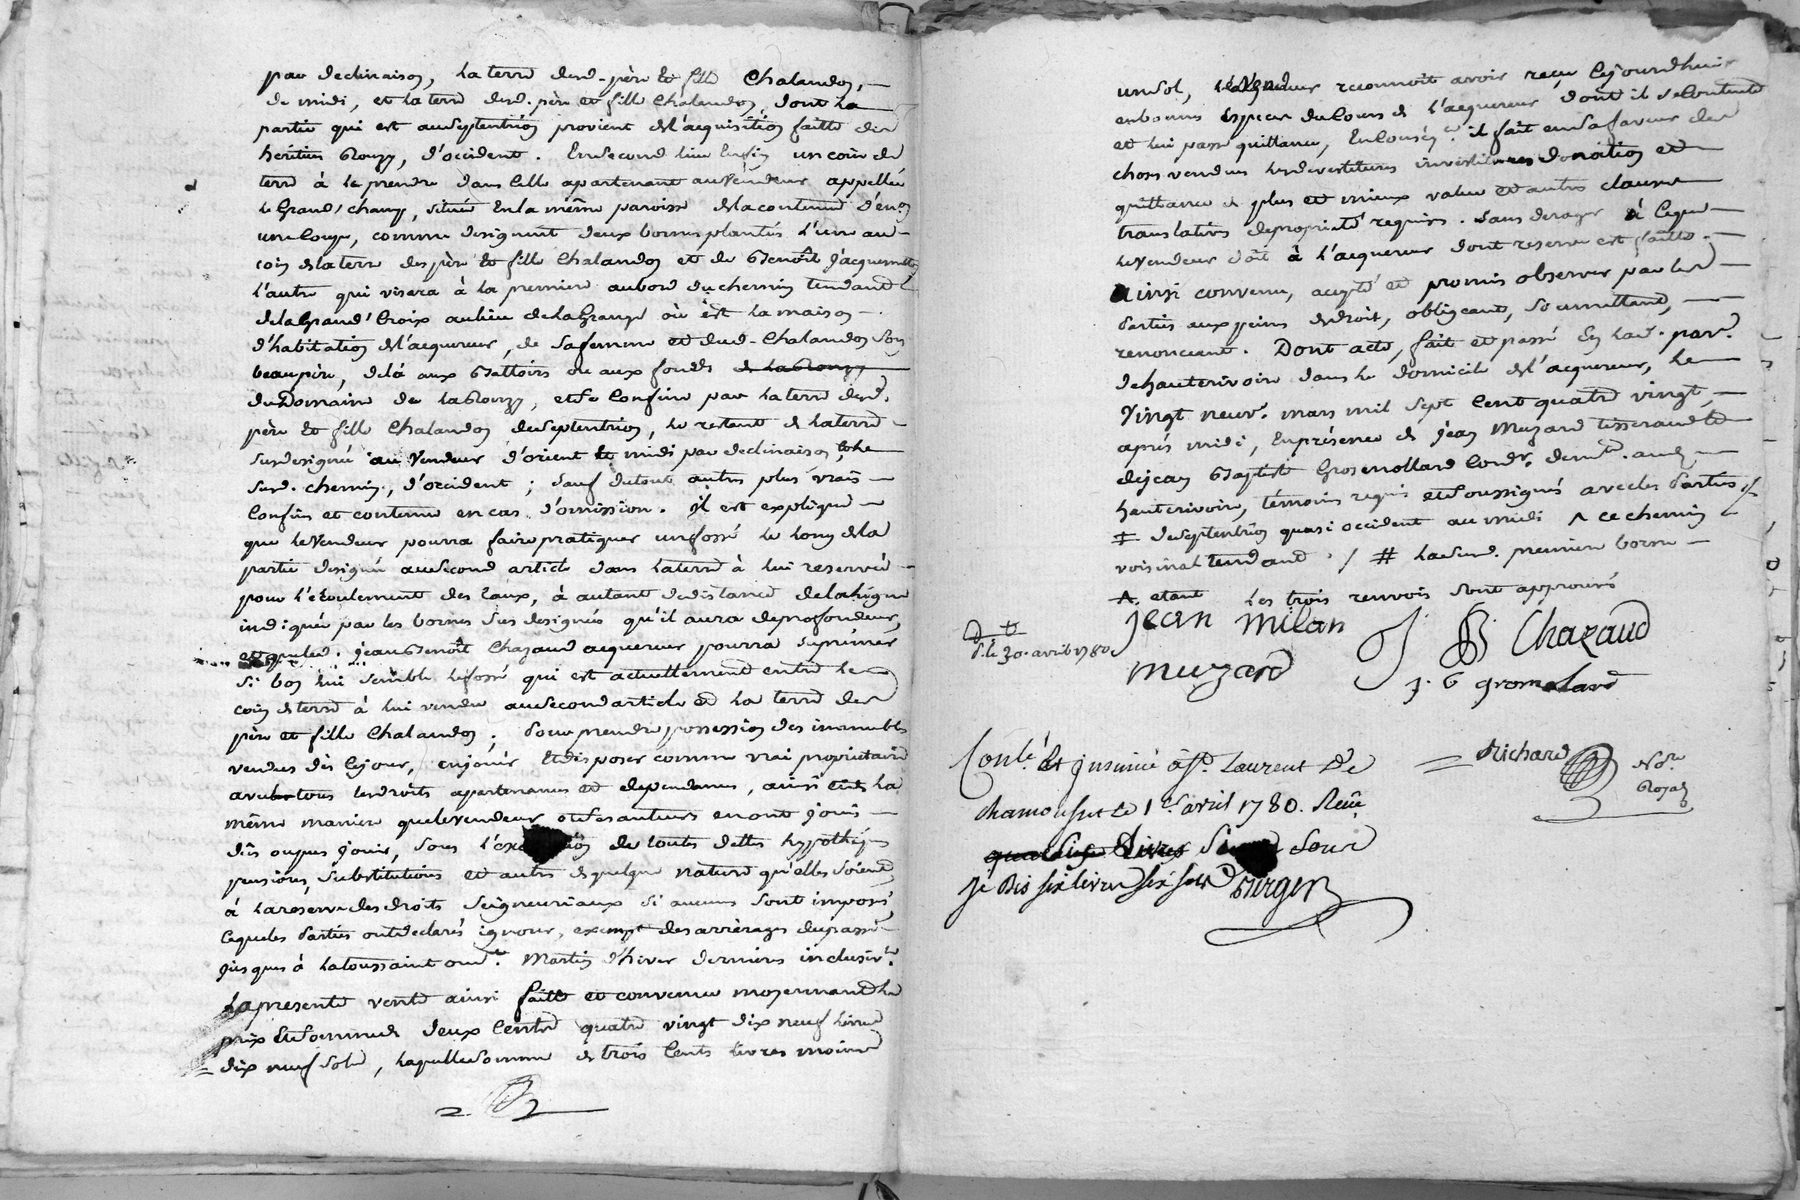 par declinaison, la terre desd. père et fille Chalandon,
de midi, et la terre desd. père et fille Chalandon, dont la
partie qui est au septentrion provient de l'acquisition faitte des
héritiers Rouzy, d'occident. En second lieu enfin un coin de
terre à le prendre dans celle apartenant au vendeur appellée
le Grand' champ, située en la même paroisse de la contenue d'en.on
une coupe, comme designent deux bornes plantées l'une au
coin de la terre des père et fille Chalandon et de Benoît Jacquemetton
l'autre qui visera à la premiere au bord du chemin tendant
de la Grand' Croix au lieu de la Grange où est la maison
d'habitation de l'acquereur, de sa femme et dud. Chalandon son
beaupère, delà aux Battoirs ou aux fonds de la Rouzy
du Domaine de la Rouzy, et se confine par la terre desd.
père et fille Chalandon de septentrion, le restant de la terre
susdesignée au vendeur d'orient et midi par declinaison, et le
susd. chemin, d'occident; sauf du tout autres plus vrais
confins et contenue en cas d'omission. Il est expliqué
que le vendeur pourra faire pratiquer un fossé le long de la
partie designée au second article dans la terre à lui reservée
pour l'écoulement des eaux, à autant de distance de la ligne
indiquée par les bornes sus designées qu'il aura de profondeur,
et que led. Jean Benoît Chazaud acquereur pourra suprimer
si bon lui semble le fossé qui est actuellement entre le
coin de terre à lui vendu au second article et la terre des
père et fille Chalandon. Pour prendre possession des immeubles
vendus dès ce jour, en jouir et disposer comme vrai propriétaire
avec tous les droits apartenances et dependances, ainsi et de la
même maniere que le vendeur et ses auteurs en ont joui
dûs ou pus jouir, sous l'exemption de toutes dettes hypothèques
pensions, substitutions et autres de quelque nature qu'elles soient,
à la reserve des droits seigneuriaux si aucuns sont imposés,
lesquels parties ont declarés ignorer, exempt des arrèrages du passé
jusques à la toussaint ou St. Martin d'hiver derniers inclusivt.
La presente vente ainsi faitte et convenue moyennant le
prix et somme de deux cents quatre vingt dix neuf livres
dix neuf sols, laquelle somme de trois cents livres moins
un sol, le vendeur reconnoît avoir reçu ce jourdhuier
en bonnes especes du cours de l'acquereur dont il se contente
et lui passe quittance, En conséqce. il fait en sa faveur des
choses vendues les devestitures investitures donation et
quittance de plus et mieux value et autres clauses
translatives de propriété requises. Sans deroger à ce que
le vendeur doit à l'acquereur dont reserve est faitte.
Ainsi convenu, accepté et promis observer par les
Parties aux peines de droit, obligeant, soumettant,
renonceant. Dont acte, fait et passé en lad. par.
de hauterivoire dans le domicile de l'acquereur, le
Vingt neuf. mars mil sept cent quatre vingt,
après midi, En présence de Jean Muzard tisserand et
de Jean Baptiste Grosmollard cordr. demts. aud.
hauterivoire, témoins requis et soussignés avec les Parties
‡ de septentrion quasi occident au midi ^ ce chemin
voisinal tendant / # ladite premiere borne
^. etant Les trois renvois sont approuvés
Jean Milan J. B. Chazaud
D. t.
d. le 30. avril 1780.
Muzard J. B gromolard
Conlé. Et Insinué à St. Laurent De
chamousset le 1er. avril 1780. Reçu
= Richard Nore.
Royal
je dis six livres six sols Berger